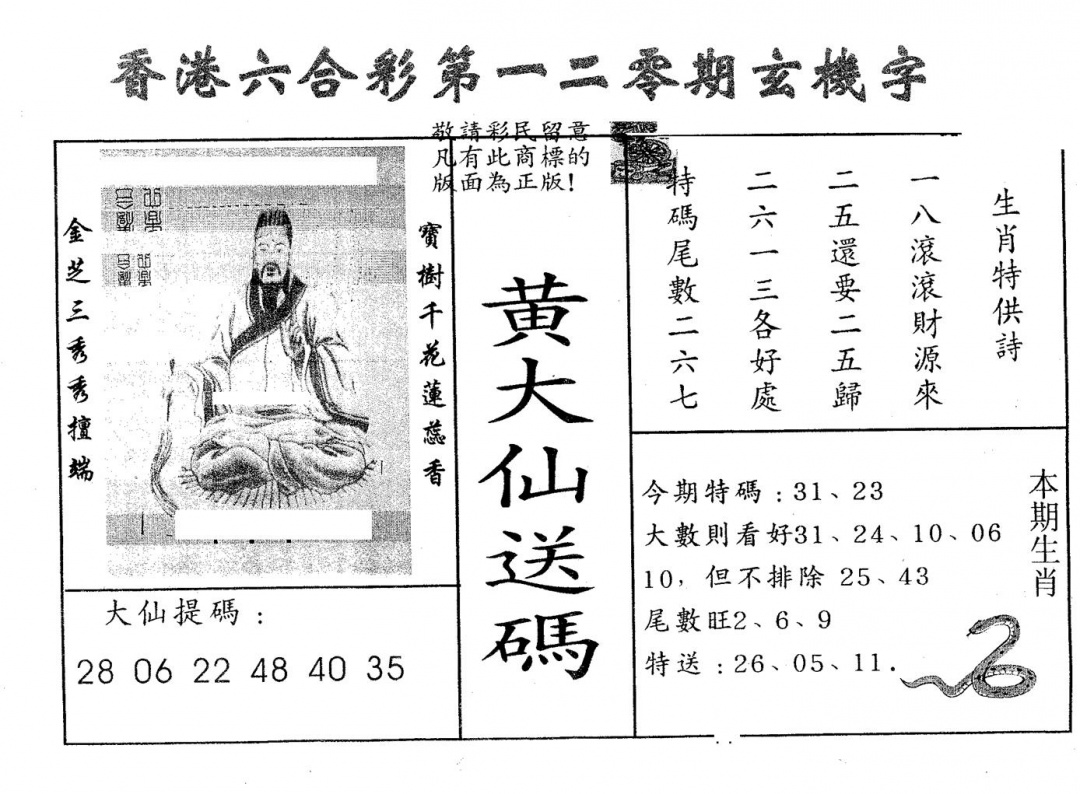 香港六合彩第一二零期玄機字
敬請彩民留意
凡有此商標的
版面為正版！
寶樹千花蓮蕊香
金芝三秀秀擅端
黃大仙送碼
大仙提碼：
28 06 22 48 40 35
生肖特供詩
一八滾滾財源來
二五還要二五歸
二六一三各好處
特碼尾數二六七
本期生肖
今期特碼：31、23
大數則看好31、24、10、06
10，但不排除 25、43
尾數旺2、6、9
特送：26、05、11.